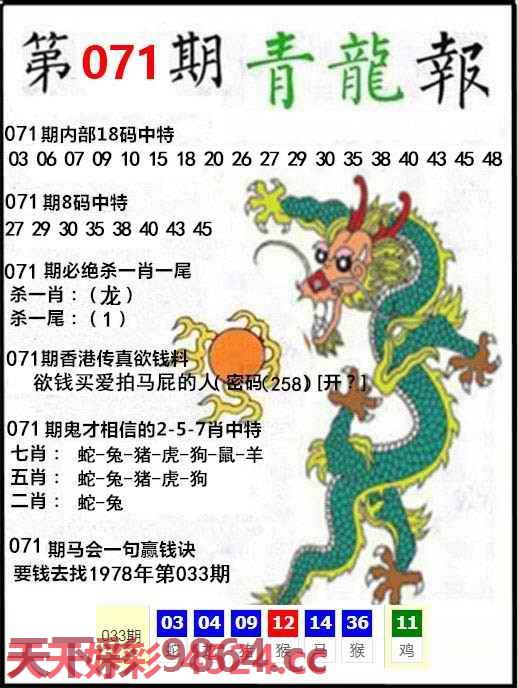 第071期青龍報
071期内部18码中特
03 06 07 09 10 15 18 20 26 27 29 30 35 38 40 43 45 48
071期8码中特
27 29 30 35 38 40 43 45
071期必绝杀一肖一尾
杀一肖：（龙）
杀一尾：（1）
071期香港传真欲钱料
欲钱买爱拍马屁的人(密码(258)[开？]
071期鬼才相信的2-5-7肖中特
七肖： 蛇-兔-猪-虎-狗-鼠-羊
五肖： 蛇-兔-猪-虎-狗
二肖： 蛇-兔
071期马会一句赢钱诀
要钱去找1978年第033期
033期 03 04 09 12 14 36 11
蛇 龙 猪 猴 马 猴 鸡
天下彩9864.cc